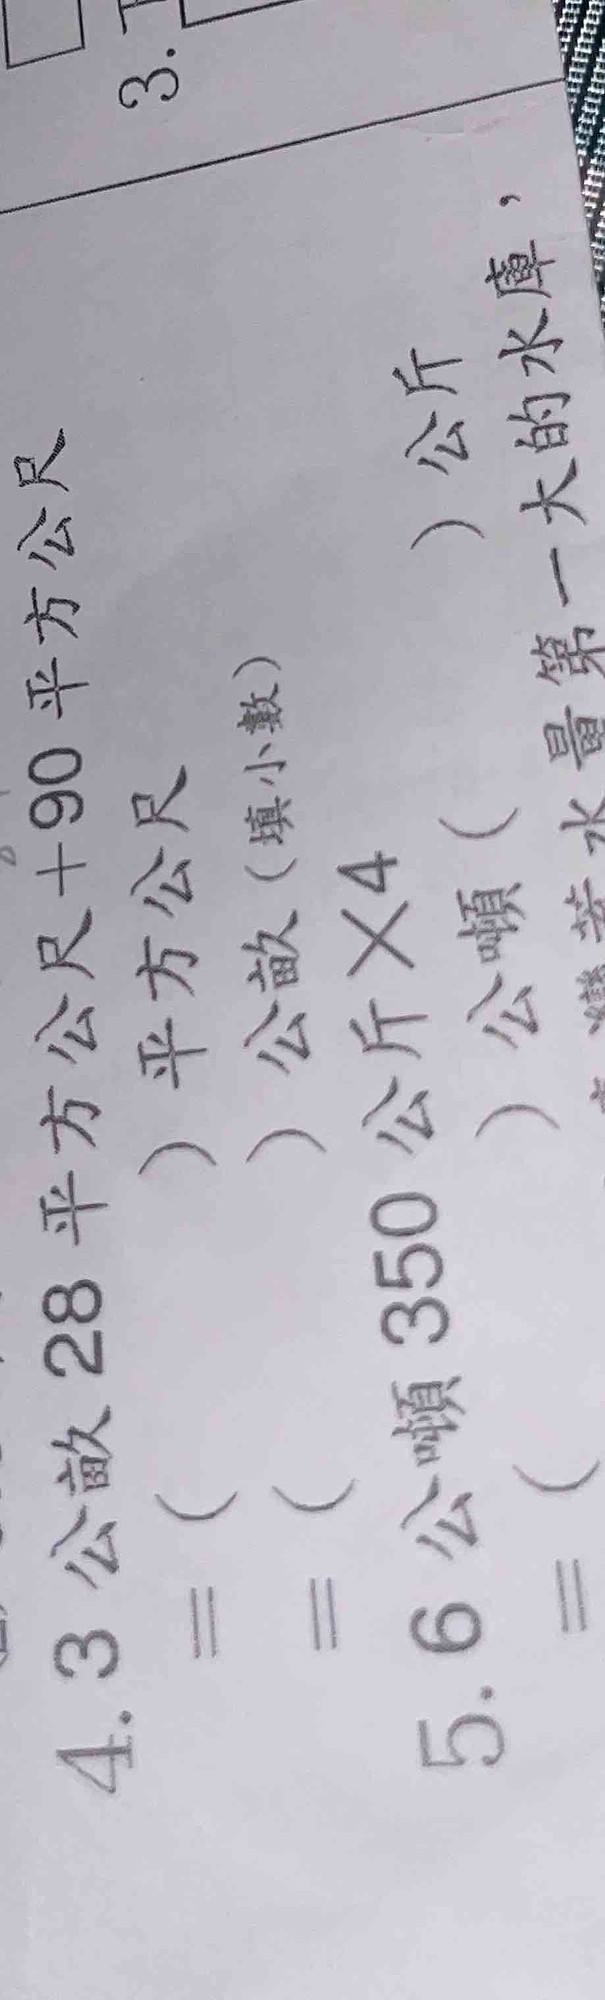 3.
4. 3 公畝 28 平方公尺+90 平方公尺
=( )平方公尺
=( )公畝(填小數)
5. 6 公噸 350 公斤×4
=( )公噸( )公斤
若水量第一大的水庫,